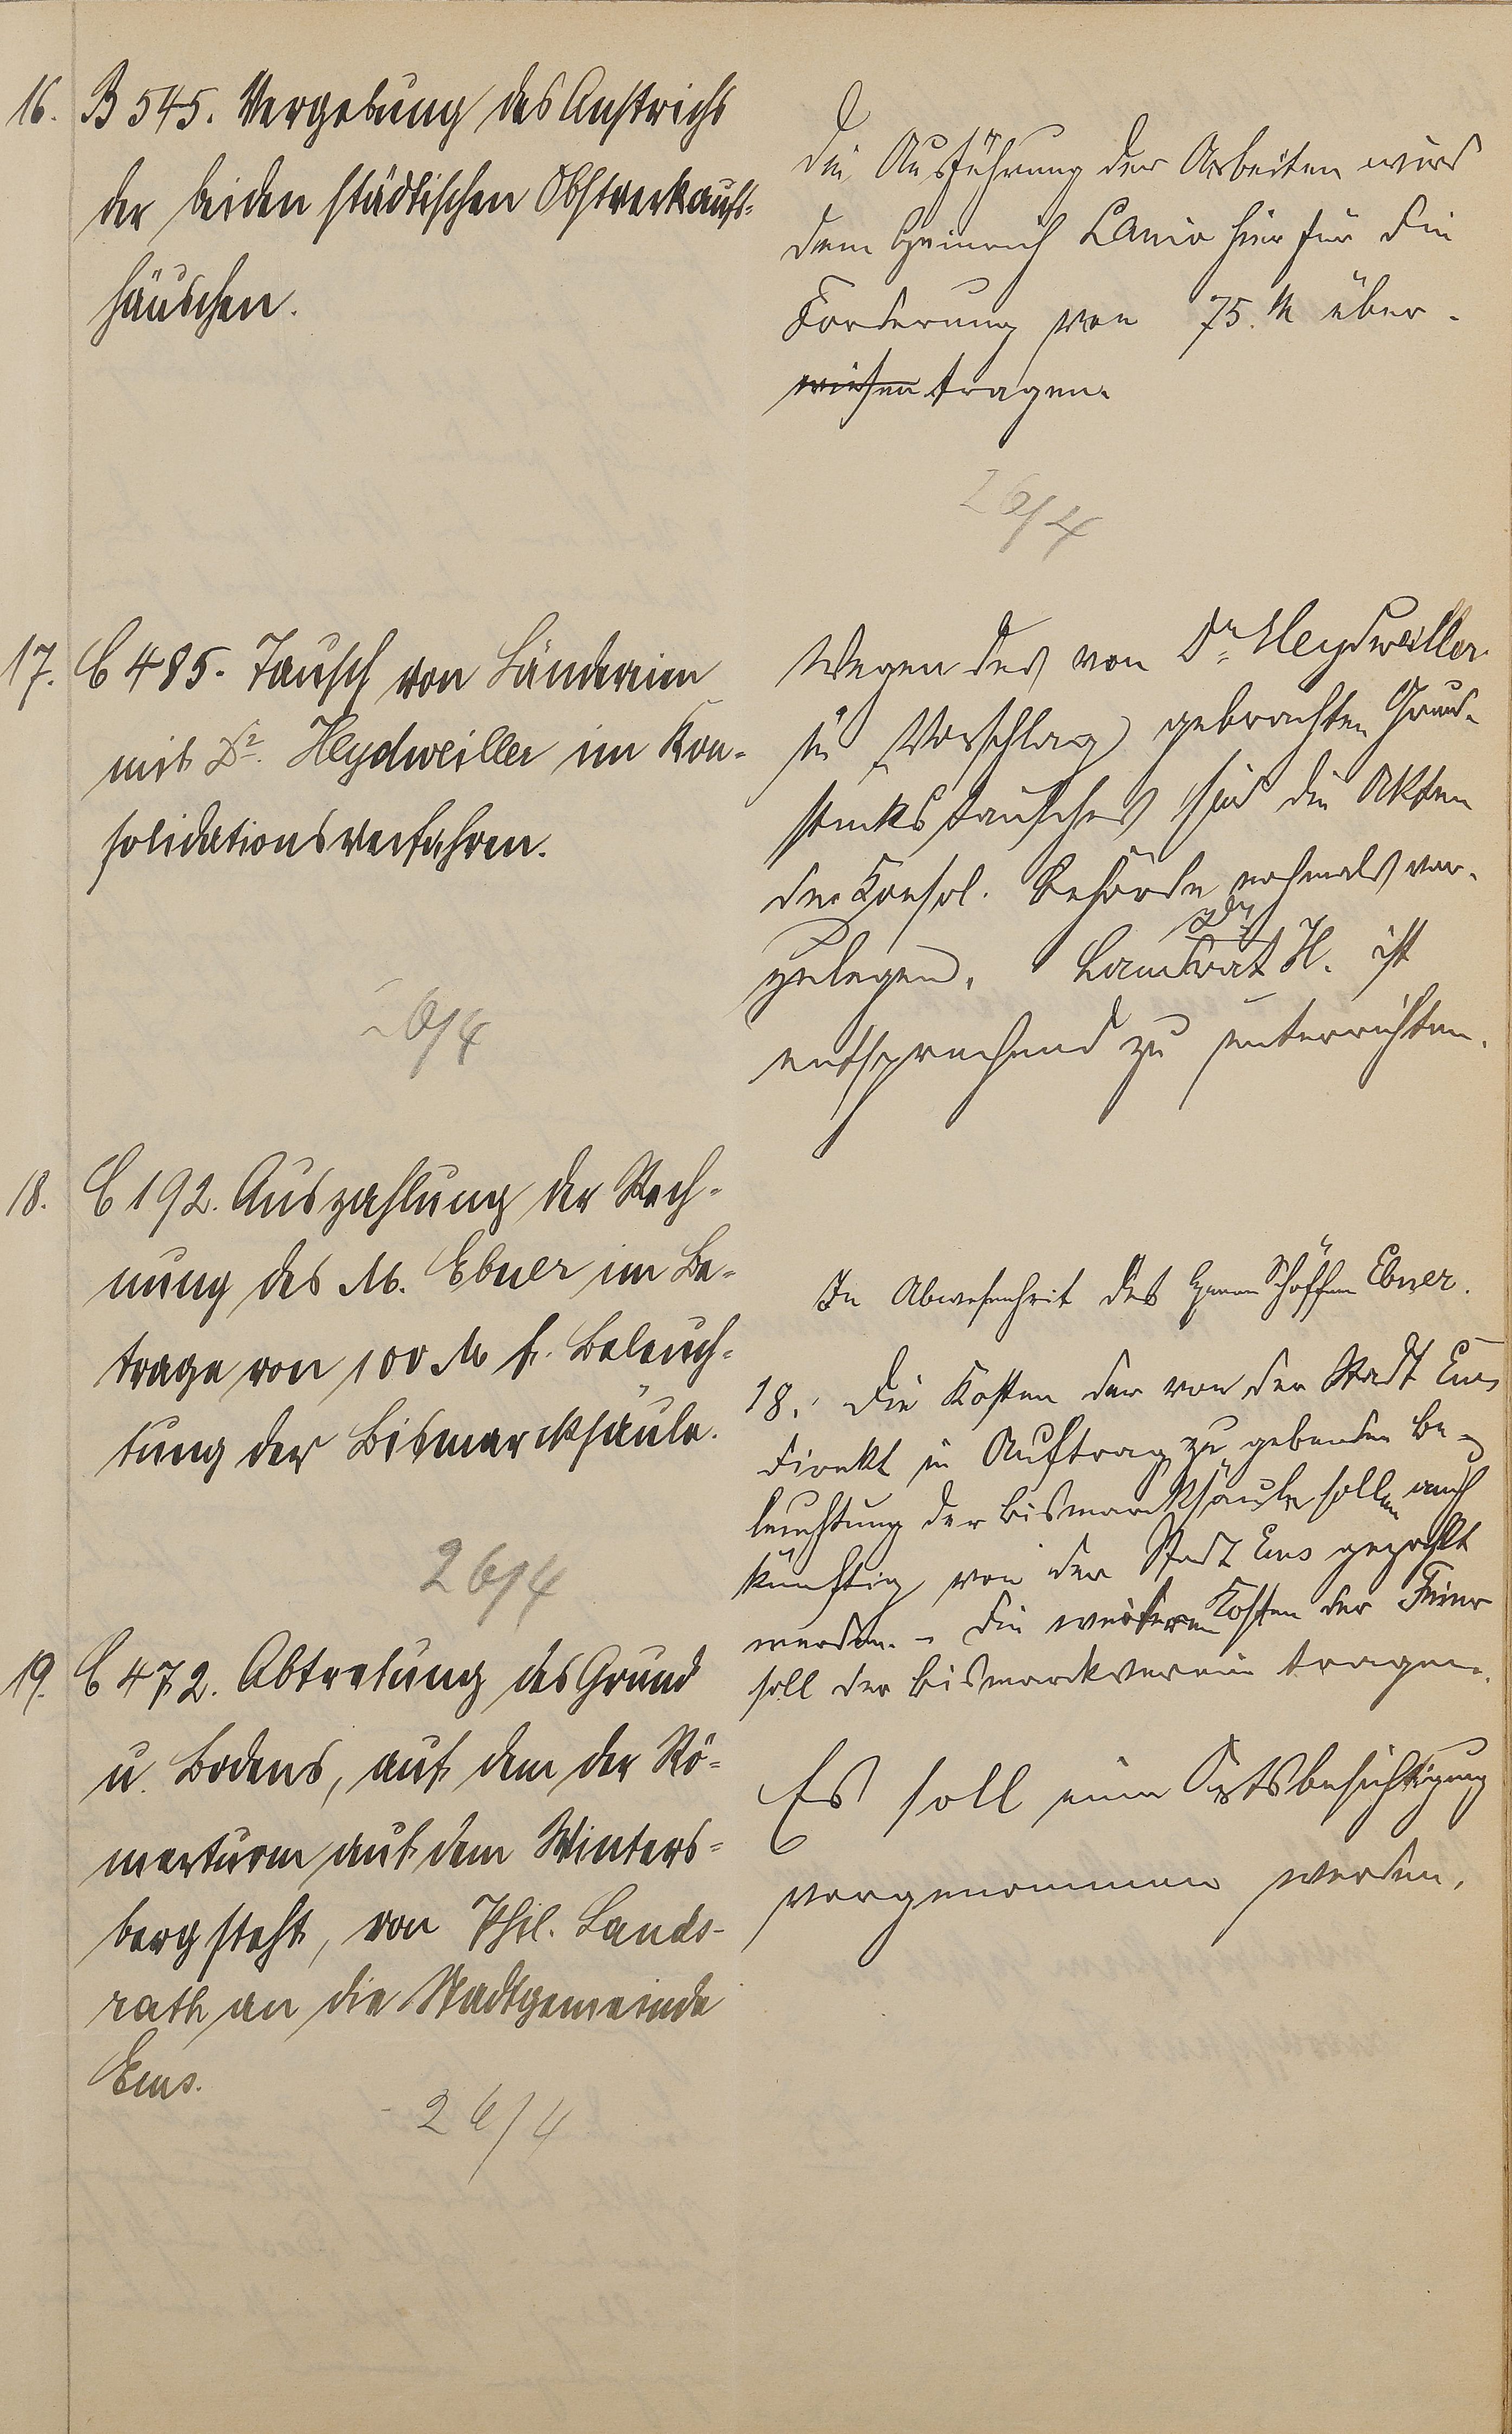 16. B 545. Vergebung des Anstrichs
der beiden städtischen Obstverkaufs-
häuschen.
Die Ausführung der Arbeiten wird
dem Heinrich Lanio hier für die
Forderung von 75. M über-
wiesen tragen.
26/4
17. C 485. Tausch von Ländereien
mit Dr. Heydweiller im Kon-
solidationsverfahren.
26/4
Wegen des von Dr. Heydweiller
in Vorschlag gebrachten Grund-
stückstausches sind die Akten
der Konsol. Behörde nochmals vor-
zulegen. Landrat H. ist
entsprechend zu unterrichten.
18. C 192. Auszahlung der Rech-
nung des M. Ebner im Be-
trage von 100 M f. Beleuch-
tung der Bismarcksäule.
26/4
In Abwesenheit des Herrn Schöffen Ebner.
18. Die Kosten der von der Stadt Ems
direkt in Auftrag zu gebenden Be-
leuchtung der Bismarcksäule sollen auch
künftig von der Stadt Ems gezahlt
werden. - Die weiteren Kosten der Feier
soll der Bismarckverein tragen.
19. C 472. Abtretung des Grund
u. Bodens, auf dem der Rö-
merturm auf dem Winters-
berg steht, von Phil. Lands-
rath an die Stadtgemeinde
Ems.
26/4
Es soll eine Ortsbesichtigung
vorgenommen werden.